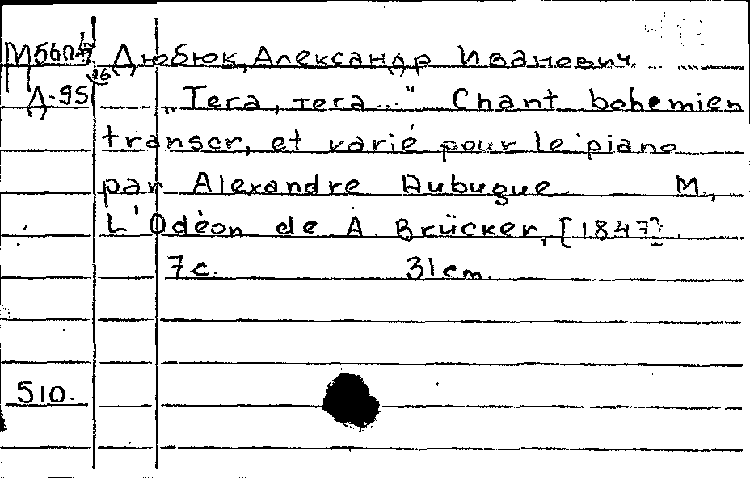 Дюбюк, Александр Иванович
Д-95 "Тега, тега..." Chant bohemien
transcr, et varié pour le piano
par Alexandre Dubugue M.,
L'Odèon de A Brücker, [1847].
7 с. 31 cm.
510.